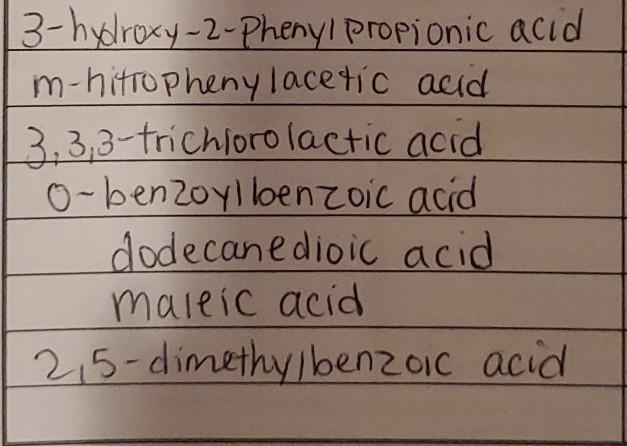 3-hydroxy-2-Phenyl propionic acid
m-nitrophenylacetic acid
3,3,3-trichlorolactic acid
o-benzoylbenzoic acid
dodecanedioic acid
maleic acid
2,5-dimethylbenzoic acid